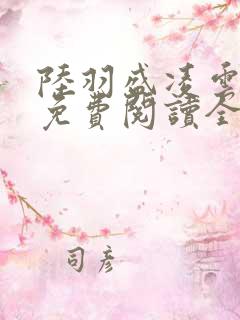 陸羽盛凌雲
免費閱讀全
司彥